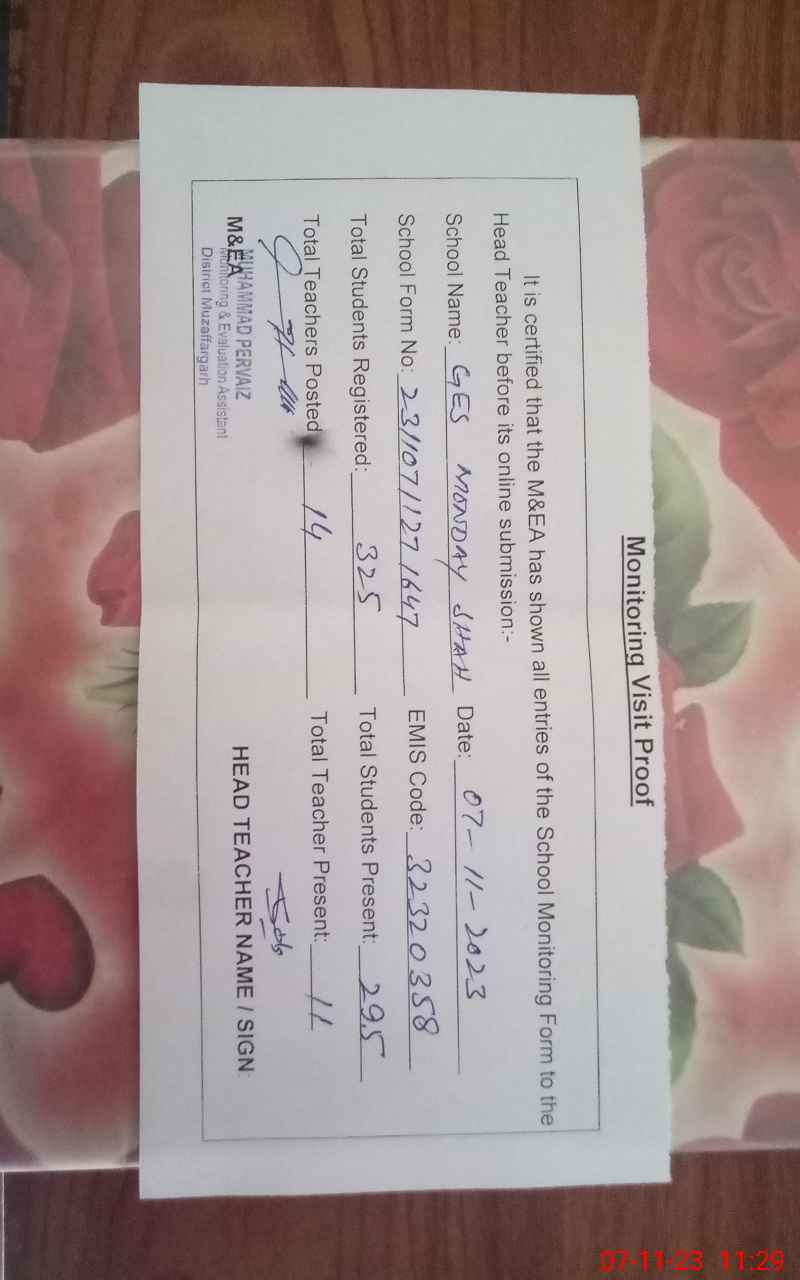 Monitoring Visit Proof
It is certified that the M&EA has shown all entries of the School Monitoring Form to the
Head Teacher before its online submission:-
School Name: GES MONDAY SHAH Date: 07-11-2023
School Form No: 23110711271647 EMIS Code: 32320358
Total Students Registered: 325 Total Students Present: 295
Total Teachers Posted 14 Total Teacher Present: 11
M&EA HEAD TEACHER NAME / SIGN
MUHAMMAD PERVAIZ
Monitoring & Evaluation Assistant
District Muzaffargarh
07-11-23 11:29